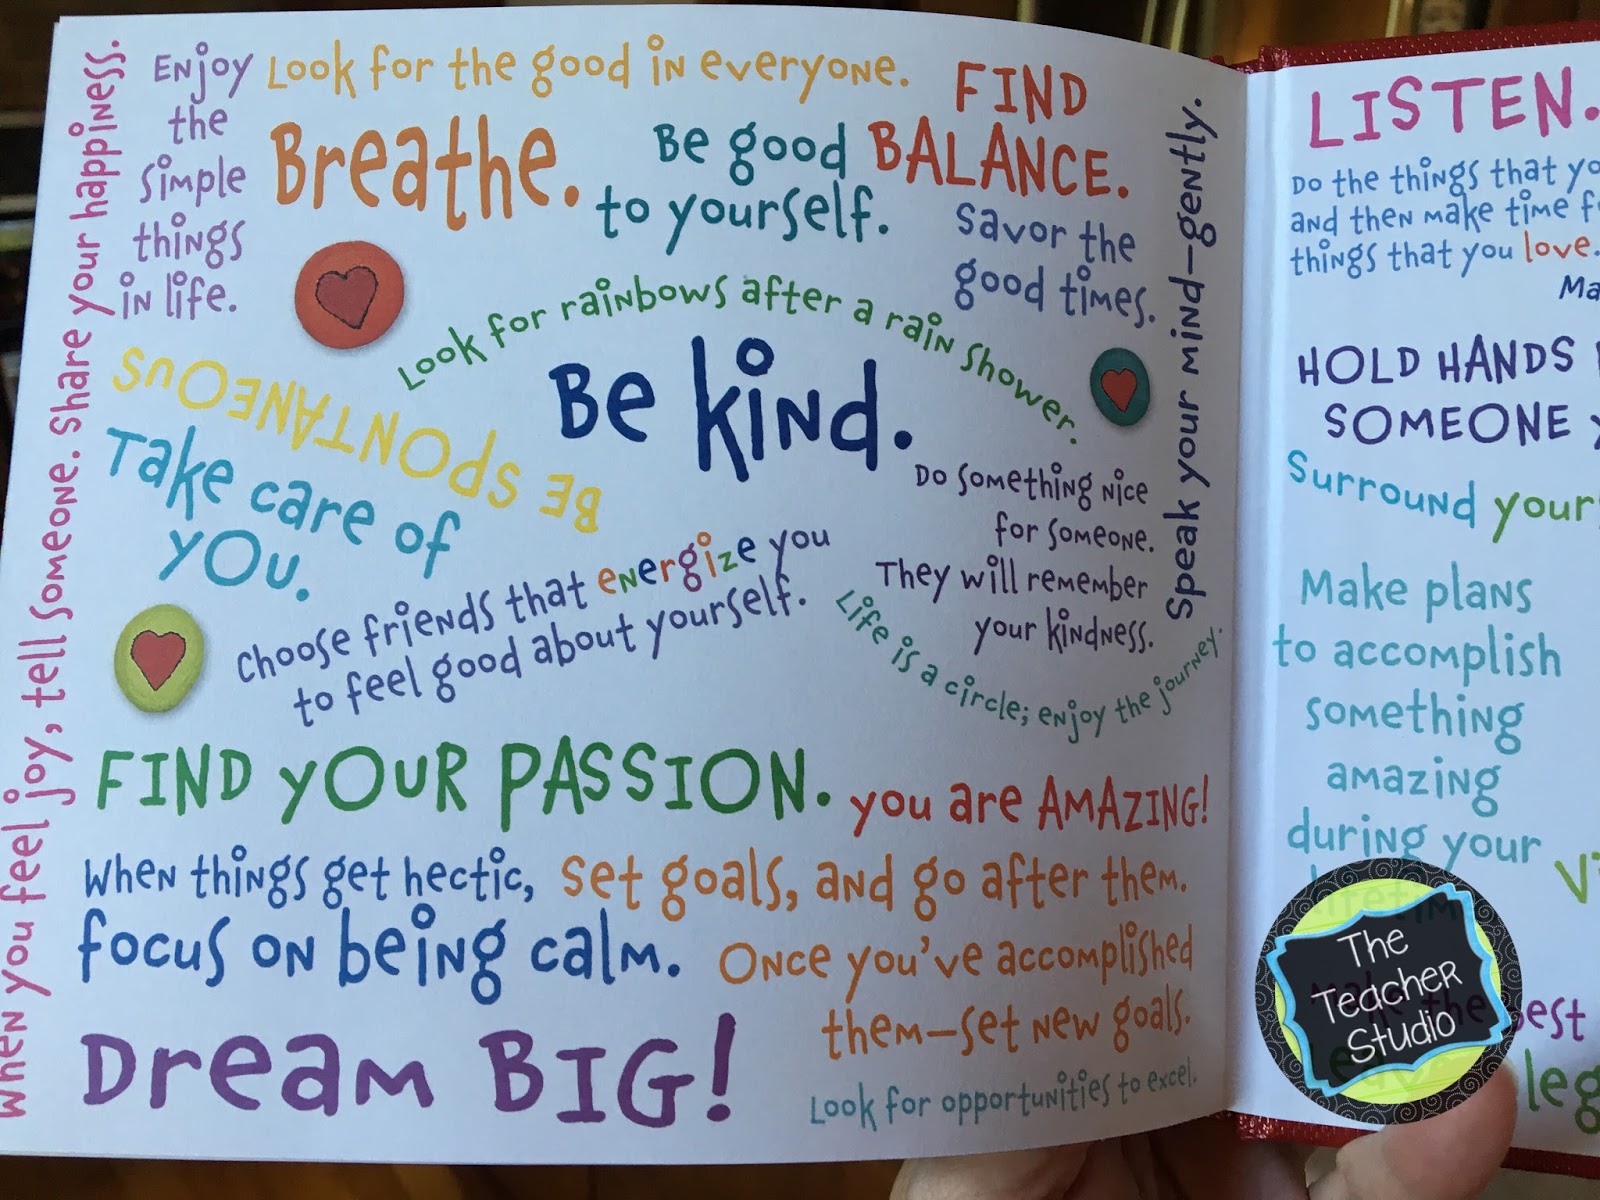 When you feel joy, tell someone. Share your happiness.
Enjoy
the
simple
things
in life.
Look for the good in everyone.
Breathe.
Be good
to yourself.
FIND
BALANCE.
Savor the
good times.
Speak your mind—gently.
Look for rainbows after a rain shower.
Be kind.
BE SPONTANEOUS
Take care of
you.
Do something nice
for someone.
They will remember
your kindness.
Choose friends that energize you
to feel good about yourself.
Life is a circle; enjoy the journey.
FIND YOUR PASSION.
You are AMAZING!
When things get hectic,
focus on being calm.
Set goals, and go after them.
Once you've accomplished
them—set new goals.
Dream BIG!
Look for opportunities to excel.
LISTEN.
Do the things that
and then make time
things that you love.
HOLD HANDS
SOMEONE
Surround
Make plans
to accomplish
something
amazing
during your
lifetime
the best
The
Teacher
Studio